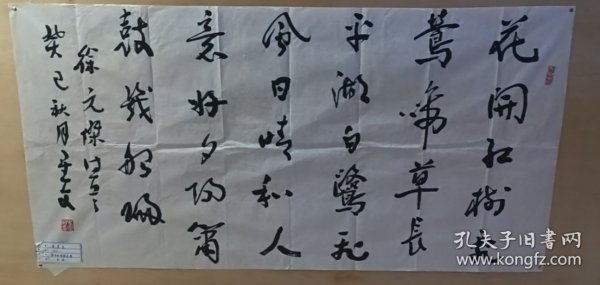 花開红樹乱
鶯啼草長
平湖白鷺飞
風日晴和人
意好夕阳箫
鼓幾船歸
徐元傑诗
癸巳秋月
孔夫子旧书网
www.kongfz.com